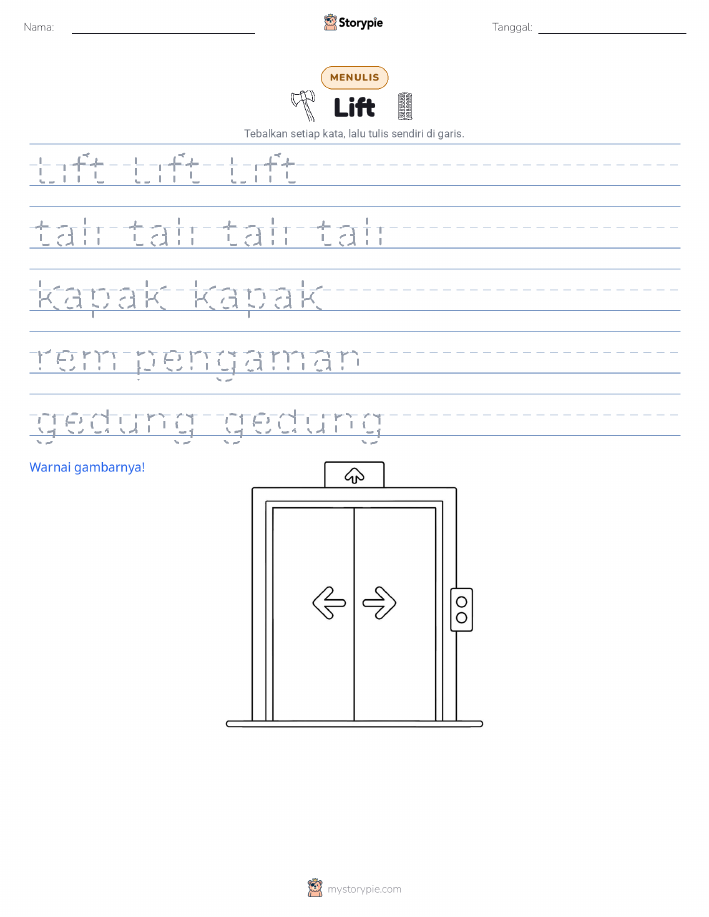 Nama:
Storypie
Tanggal:
MENULIS
Lift
Tebalkan setiap kata, lalu tulis sendiri di garis.
Lift Lift Lift
tali tali tali tali
kapak kapak
rem pengaman
gedung gedung
Warnai gambarnya!
mystorypie.com